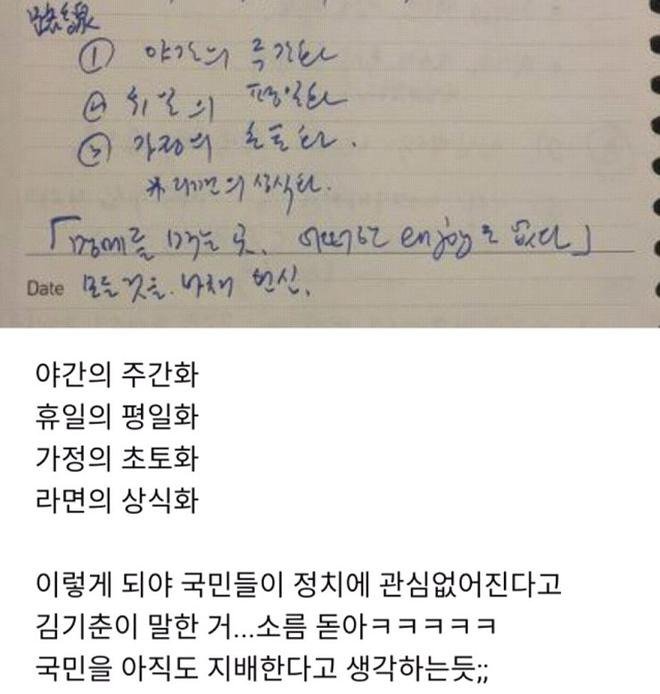 路線
① 야간의 주간화
② 휴일의 평일화
③ 가정의 초토화.
* 라면의 상식화.
「명예를 먹는 곳. 어떠한 enjoy도 없다」
Date 모든 것을 바쳐 헌신.
야간의 주간화
휴일의 평일화
가정의 초토화
라면의 상식화
이렇게 되야 국민들이 정치에 관심없어진다고
김기춘이 말한 거...소름 돋아ㅋㅋㅋㅋㅋ
국민을 아직도 지배한다고 생각하는듯;;